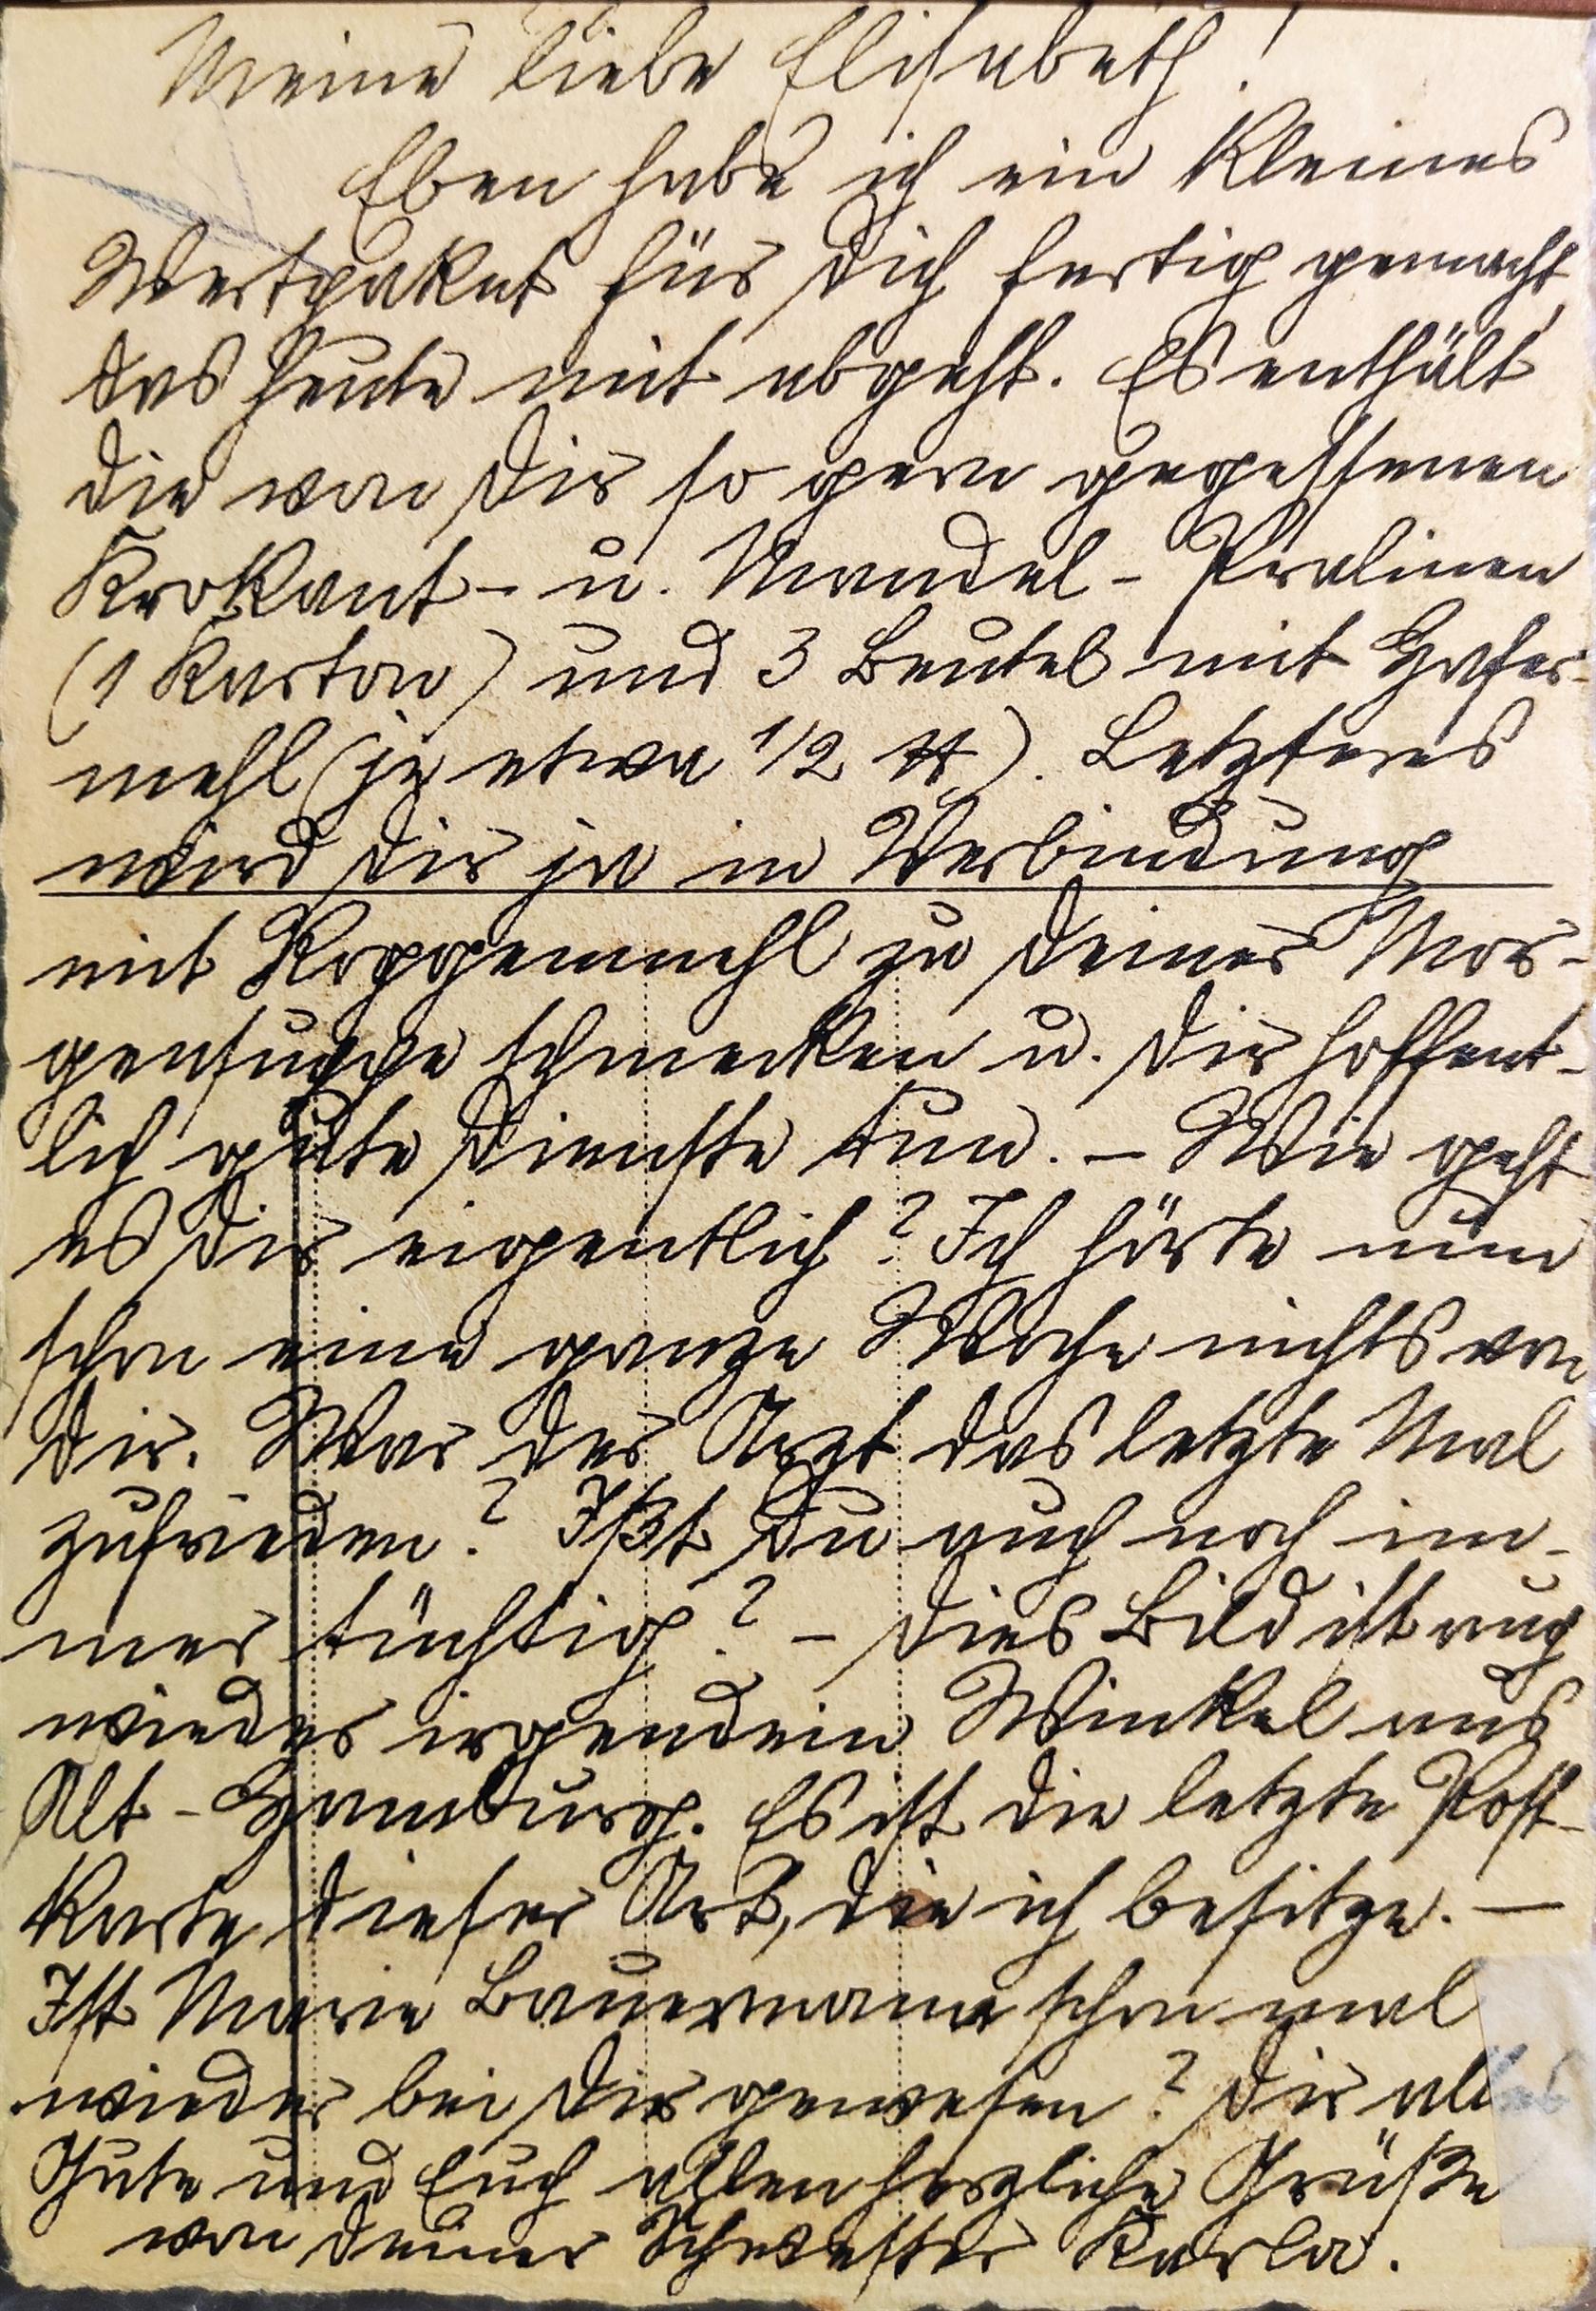 Meine liebe Elisabeth!
Eben habe ich ein kleines
Wertpaket für Dich fertig gemacht,
das heute mit abgeht. Es enthält
die von Dir so gern gegessenen
Krokant- u. Mandel-Pralinen
(1 Karton) und 3 Beutel mit Hafer-
mehl (je etwa 1/2 ℔). Letzteres
wird Dir ja in Verbindung
mit Roggenmehl zu Deiner Mor-
gensuppe schmecken u. Dir hoffent-
lich gute Dienste tun. – Wie geht
es Dir eigentlich? Ich hörte nun
schon eine ganze Woche nichts von
Dir. War der Arzt das letzte Mal
zufrieden? Ißt Du auch noch im-
mer tüchtig? – Dies Bild ist auch
wieder irgendein Winkel aus
Alt-Hamburg. Es ist die letzte Post-
karte dieser Art, die ich besitze. –
Ist Marie Bauermann schon mal
wieder bei Dir gewesen? Dir all
Gute und Euch allen herzliche Grüße
von Deiner Schwester Karla.